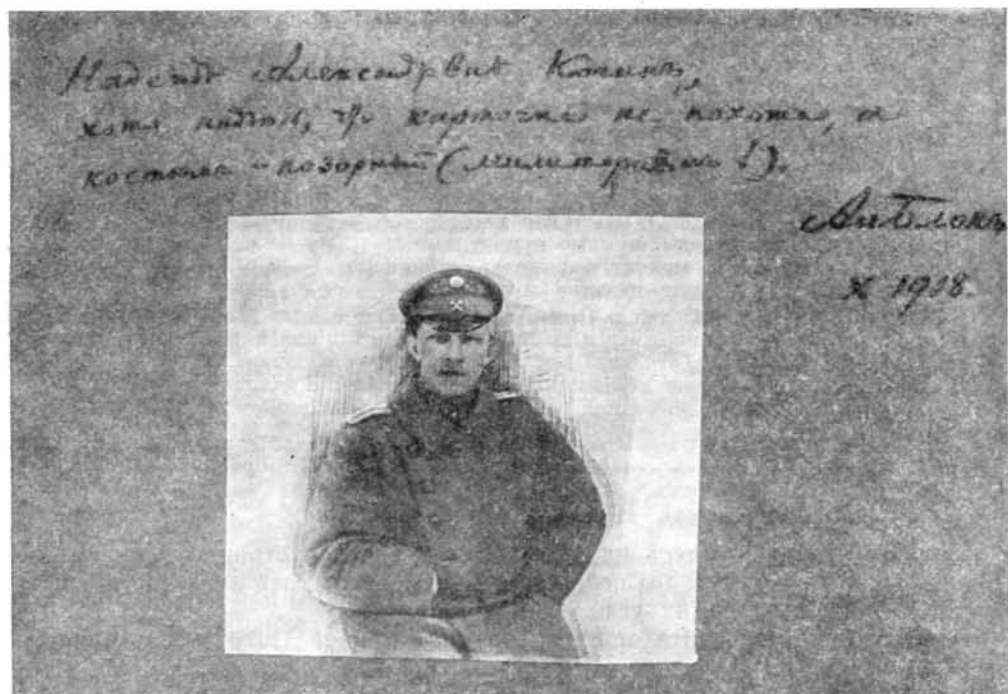 Надеждѣ Александровнѣ Коганъ,
хотя что карточка не похожа,
костюмъ – позорный (милитаризмъ!).
Ал. Блокъ
X 1918.